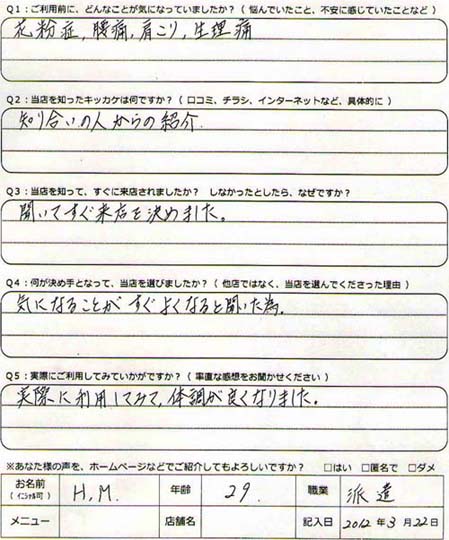 Q1：ご利用前に、どんなことが気になっていましたか？（ 悩んでいたこと、不安に感じていたことなど ）
花粉症, 腰痛, 肩こり, 生理痛
Q2：当店を知ったキッカケは何ですか？（ 口コミ、チラシ、インターネットなど、具体的に ）
知り合いの人からの紹介.
Q3：当店を知って、すぐに来店されましたか？　しなかったとしたら、なぜですか？
聞いてすぐ来店を決めました。
Q4：何が決め手となって、当店を選びましたか？（ 他店ではなく、当店を選んでくださった理由 ）
気になることがすぐよくなると聞いた為.
Q5：実際にご利用してみていかがですか？（ 率直な感想をお聞かせください ）
実際に利用してみて, 体調が良くなりました。
※あなた様の声を、ホームページなどでご紹介してもよろしいですか？　□はい　□匿名で　□ダメ
お名前（イニシャル可） H.M. 年齢 29. 職業 派遣
メニュー 店舗名 記入日 2012 年 3 月 22 日